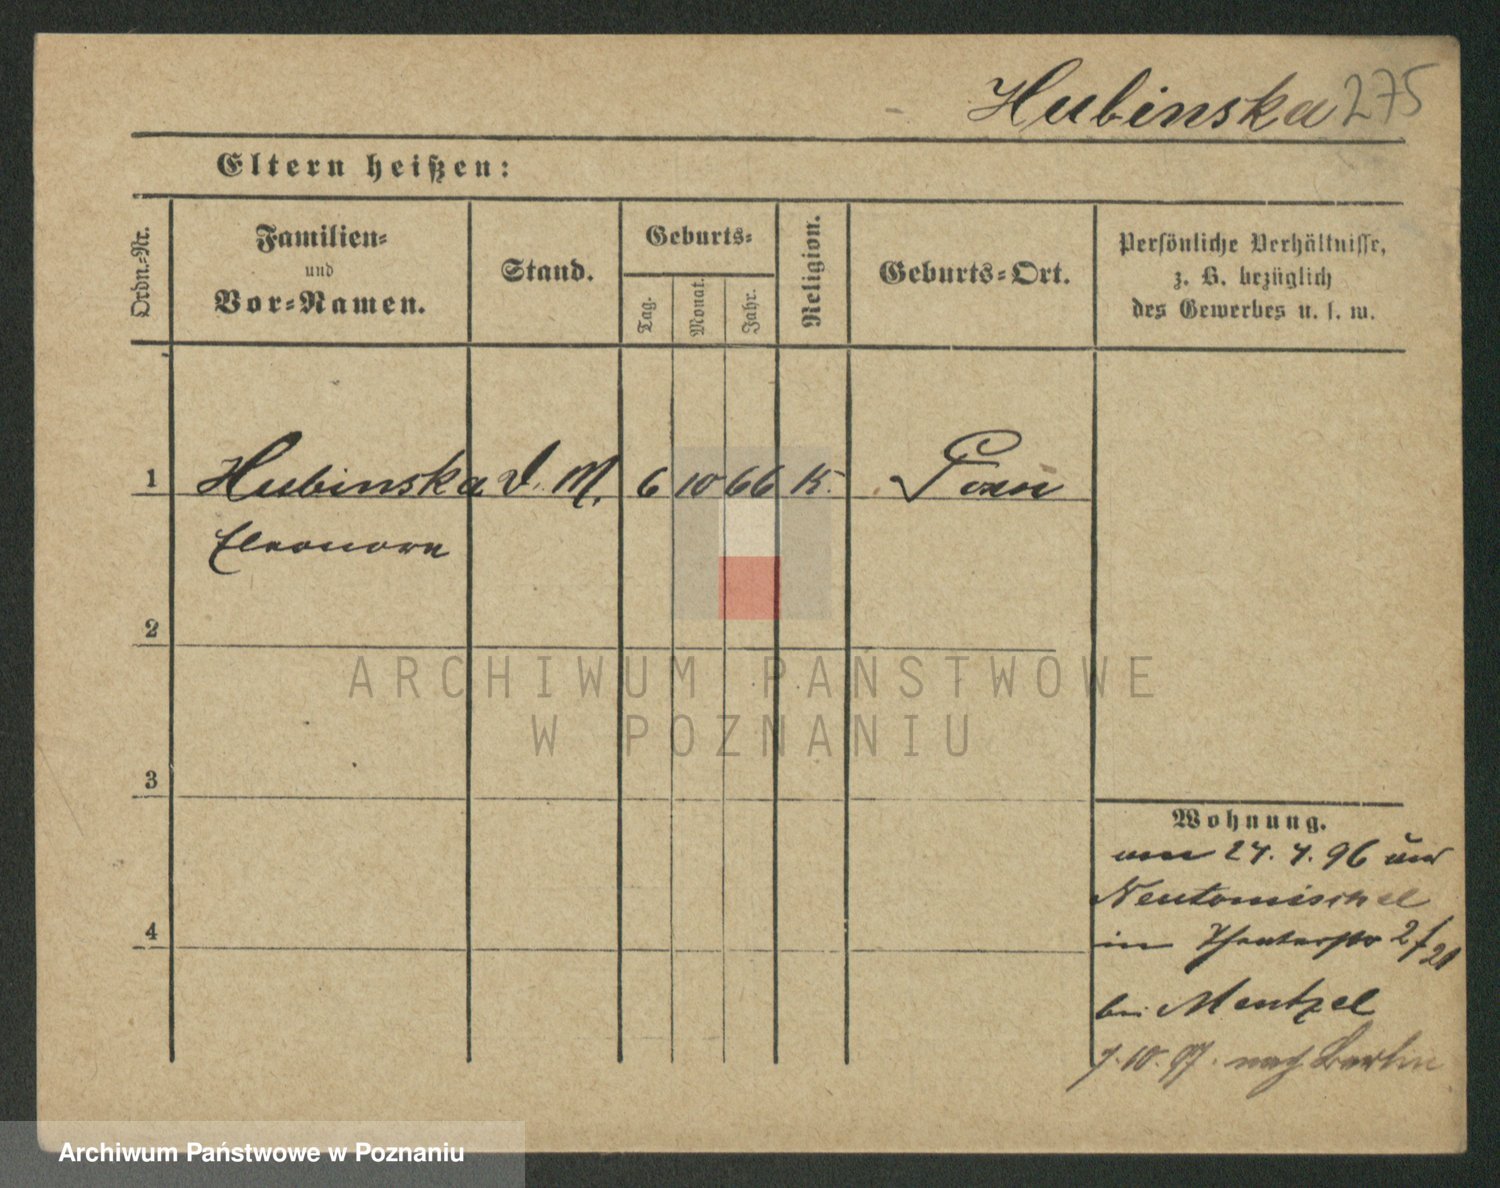 Hubinska 275
Eltern heißen:
Ordn.-Nr.
Familien-
und
Vor-Namen.
Stand.
Geburts-
Tag.
Monat.
Jahr.
Religion.
Geburts-Ort.
Persönliche Verhältnisse,
z. B. bezüglich
des Gewerbes u. s. w.
1 Hubinska D. M. 6 10 66 K.
Eleonore
2
3
4
Wohnung.
24. 4. 96 aus
Neutomischel
in Theaterstr 2/
bei Mentzel
7. 10. 97. nach Berlin
ARCHIWUM PAŃSTWOWE
W POZNANIU
Archiwum Państwowe w Poznaniu